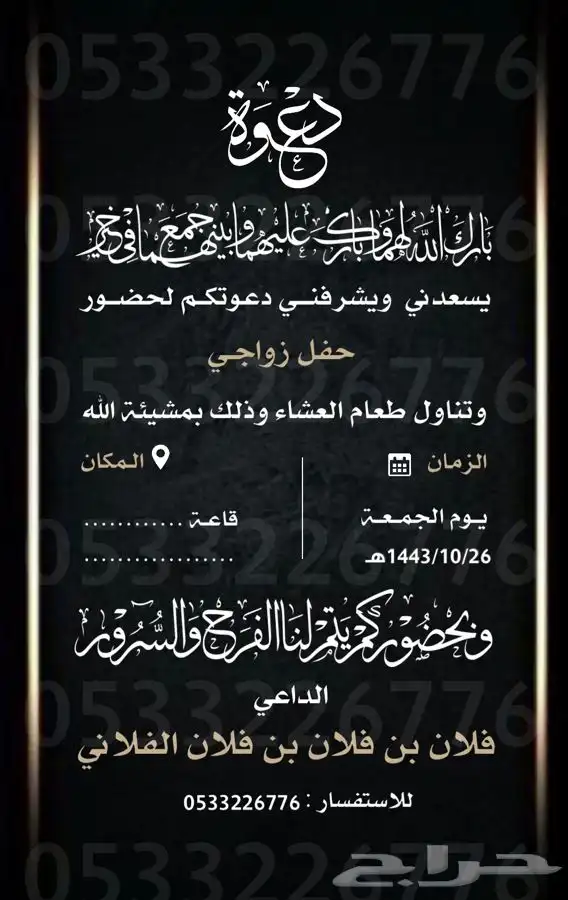 0533226776
دعوة
بارك الله لهما وبارك عليهما وجمع بينهما في خير
يسعدني ويشرفني دعوتكم لحضور
حفل زواجي
وتناول طعام العشاء وذلك بمشيئة الله
الزمان
يوم الجمعة
1443/10/26هـ
المكان
قاعة ............
..................
وبحضوركم يتم لنا الفرح والسرور
الداعي
فلان بن فلان بن فلان الفلاني
للاستفسار : 0533226776
حراج
0533226776
0533226776
0533226776
0533226776
0533226776